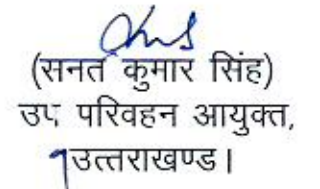 (सनत कुमार सिंह)
उप परिवहन आयुक्त,
उत्तराखण्ड।